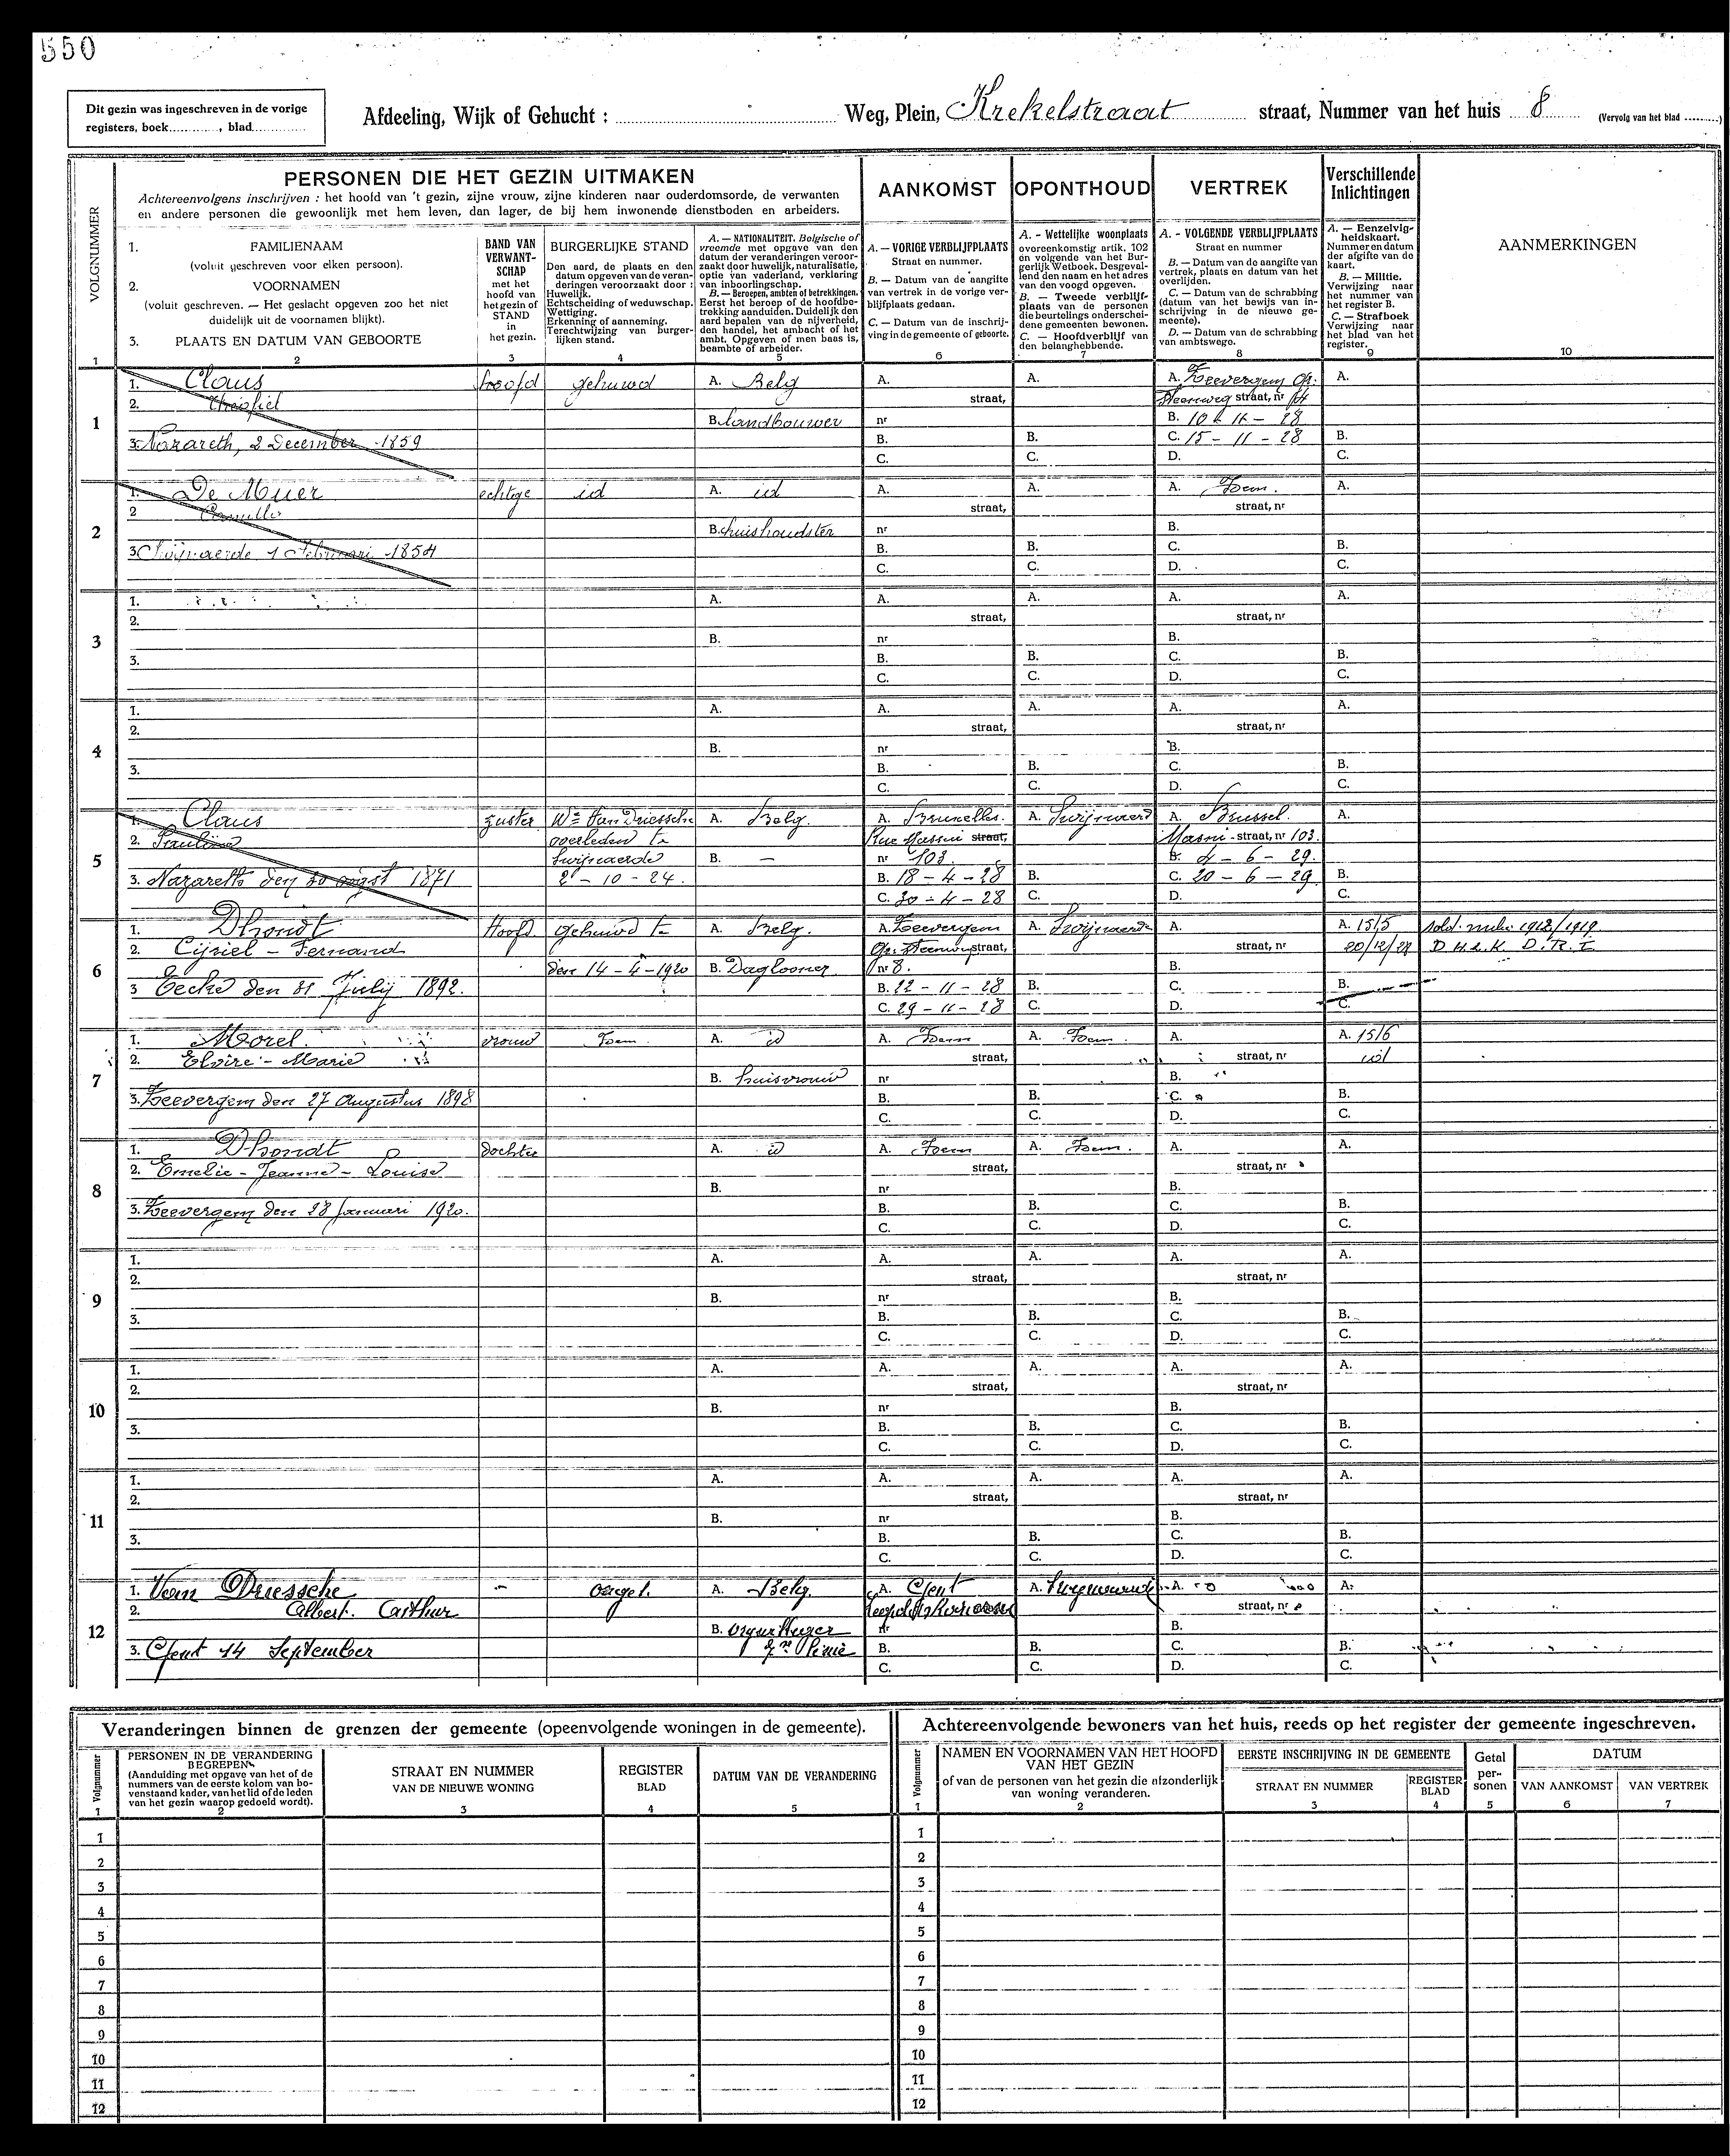 550
Dit gezin was ingeschreven in de vorige
registers, boek........., blad.............
Afdeeling, Wijk of Gehucht : Weg, Plein, Krekelstraat straat, Nummer van het huis 8 (Vervolg van het blad ..........)
VOLGNUMMER
PERSONEN DIE HET GEZIN UITMAKEN
Achtereenvolgens inschrijven : het hoofd van 't gezin, zijne vrouw, zijne kinderen naar ouderdomsorde, de verwanten
en andere personen die gewoonlijk met hem leven, dan lager, de bij hem inwonende dienstboden en arbeiders.
AANKOMST
OPONTHOUD
VERTREK
Verschillende
Inlichtingen
AANMERKINGEN
1. FAMILIENAAM
(voluit geschreven voor elken persoon).
2. VOORNAMEN
(voluit geschreven. — Het geslacht opgeven zoo het niet
duidelijk uit de voornamen blijkt).
3. PLAATS EN DATUM VAN GEBOORTE
BAND VAN
VERWANT-
SCHAP
met het
hoofd van
het gezin of
STAND
in
het gezin.
BURGERLIJKE STAND
Den aard, de plaats en den
datum opgeven van de veran-
deringen veroorzaakt door :
Huwelijk.
Echtscheiding of weduwschap.
Wettiging.
Erkenning of aanneming.
Terechtwijzing van burger-
lijken stand.
A. — NATIONALITEIT. Belgische of
vreemde met opgave van den
datum der veranderingen veroor-
zaakt door huwelijk, naturalisatie,
optie van vaderland, verklaring
van inboorlingschap.
B. — Beroepen, ambten of betrekkingen.
Eerst het beroep of de hoofdbe-
trekking aanduiden. Duidelijk den
aard bepalen van de nijverheid,
den handel, het ambacht of het
ambt. Opgeven of men baas is,
beambte of arbeider.
A. — VORIGE VERBLIJFPLAATS
Straat en nummer.
B. — Datum van de aangifte
van vertrek in de vorige ver-
blijfplaats gedaan.
C. — Datum van de inschrij-
ving in de gemeente of geboorte.
A. - Wettelijke woonplaats
overeenkomstig artik. 102
en volgende van het Bur-
gerlijk Wetboek. Desgeval-
lend den naam en het adres
van den voogd opgeven.
B. — Tweede verblijf-
plaats van de personen
die beurtelings onderschei-
dene gemeenten bewonen.
C. — Hoofdverblijf van
den belanghebbende.
A. - VOLGENDE VERBLIJFPLAATS
Straat en nummer
B. — Datum van de aangifte van
vertrek, plaats en datum van het
overlijden.
C. — Datum van de schrabbing
(datum van het bewijs van in-
schrijving in de nieuwe ge-
meente).
D. — Datum van de schrabbing
van ambtswege.
A. — Eenzelvig-
heidskaart.
Nummer en datum
der afgifte van de
kaart.
B. — Militie.
Verwijzing naar
het nummer van
het register B.
C. — Strafboek
Verwijzing naar
het blad van het
register.
1 2 3 4 5 6 7 8 9 10
1
1. Claus hoofd gehuwd A. Belg A. A. A. Zeevergem Gr. A.
2. Theofiel straat, Steenweg straat, nr
B. landbouwer nr B. 10 - 11 - 28
3. Nazareth, 2 December 1859 B. B. C. 15 - 11 - 28 B.
C. C. D. C.
2
1. De Muer echtige id A. id A. A. A. Idem. A.
2 Camille straat, straat, nr
B. huishoudster nr B.
3 Swijnaerde 1 Februari 1854 B. B. C. B.
C. C. D. C.
3
1. A. A. A. A. A.
2. straat, straat, nr
B. nr B.
3. B. B. C. B.
C. C. D. C.
4
1. A. A. A. A. A.
2. straat, straat, nr
B. nr B.
3. B. B. C. B.
C. C. D. C.
5
1. Claus zuster We Van Driessche A. Belg. A. Bruxelles. A. Swijnaerd A. Brussel. A.
2. Pauline overleden te Rue Massui straat, Masui - straat, nr 103.
Swijnaerde B. — nr 103. B. 4 - 6 - 29.
3. Nazareth den 20 oogst 1871 2 - 10 - 24. B. 18 - 4 - 28 B. C. 20 - 6 - 29 B.
C. 30 - 4 - 28 C. D. C.
6
1. Dhondt Hoofd gehuwd te A. Belg. A. Zeevergem A. Swijnaerde A. A. 1515 sold. milic 1912/1919
2. Cyriel - Fernand Gr. Steenweg straat, straat, nr 20/12/28 D.
den 14 - 4 - 1920 B. Daglooner nr 8. B.
3 Eecke den 31 July 1892. B. 22 - 11 - 28 B. C. B.
C. 29 - 11 - 28 C. D. C.
7
1. Morel. vrouw Idem. A. id A. Idem A. Idem. A. A. 1516
2. Elvire - Marie straat, straat, nr id
B. huisvrouw nr B.
3. Zeevergem den 27 Augustus 1898 B. B. C. B.
C. C. D. C.
8
1. Dhondt dochter A. id A. Idem A. Idem. A. A.
2. Emelie - Jeanne - Louise straat, straat, nr
B. nr B.
3. Zeevergem den 28 Januari 1920. B. B. C. B.
C. C. D. C.
9
1. A. A. A. A. A.
2. straat, straat, nr
B. nr B.
3. B. B. C. B.
C. C. D. C.
10
1. A. A. A. A. A.
2. straat, straat, nr
B. nr B.
3. B. B. C. B.
C. C. D. C.
11
1. A. A. A. A. A.
2. straat, straat, nr
B. nr B.
3. B. B. C. B.
C. C. D. C.
12
1. Van Driessche ongel. A. Belg. A. Gent A. A. A.
2. Albert. Arthur straat, nr
B. nr B.
3. Gent 14 September B. B. C. B.
C. C. D. C.
Veranderingen binnen de grenzen der gemeente (opeenvolgende woningen in de gemeente).
Volgnummer
PERSONEN IN DE VERANDERING
BEGREPEN
(Aanduiding met opgave van het of de
nummers van de eerste kolom van bo-
venstaand kader, van het lid of de leden
van het gezin waarop gedoeld wordt).
STRAAT EN NUMMER
VAN DE NIEUWE WONING
REGISTER
BLAD
DATUM VAN DE VERANDERING
1 2 3 4 5
1
2
3
4
5
6
7
8
9
10
11
12
Achtereenvolgende bewoners van het huis, reeds op het register der gemeente ingeschreven.
Volgnummer
NAMEN EN VOORNAMEN VAN HET HOOFD
VAN HET GEZIN
of van de personen van het gezin die afzonderlijk
van woning veranderen.
EERSTE INSCHRIJVING IN DE GEMEENTE
STRAAT EN NUMMER
REGISTER
BLAD
Getal
per-
sonen
DATUM
VAN AANKOMST
VAN VERTREK
1 2 3 4 5 6 7
1
2
3
4
5
6
7
8
9
10
11
12